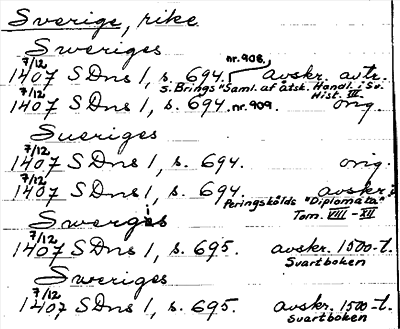 Sverige, rike
Sweriges
nr. 908,
7/12
1407 SDns 1, s. 694. avskr. avtr.
S. Brings "Saml. af åtsk. Handl. i Sv.
Hist. III.
7/12
1407 SDns 1, s. 694. nr. 909. orig.
Sueriges
7/12
1407 SDns 1, s. 694. orig.
7/12
1407 SDns 1, s. 694. avskr. i
Peringskölds "Diplomata"
Tom. VIII - XII
Swergis
7/12
1407 SDns 1, s. 695. avskr. 1500-t.
Svartboken
Sweriges
7/12
1407 SDns 1, s. 695. avskr. 1500-t.
Svartboken